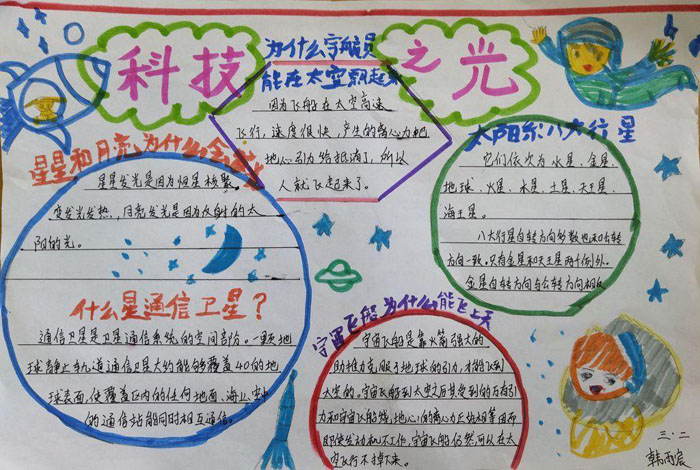 科技之光
为什么宇航员
能在太空飘起来
因为飞船在太空高速
飞行，速度很快，产生的离心力把
地心引力给抵消了，所以
人就飞起来了。
星星和月亮为什么会
星星发光是因为恒星核聚
变发光发热，月亮发光是因为反射的太
阳的光。
什么星通信卫星？
通信卫星是卫星通信系统的空间部份。一颗地
球静止轨道通信卫星大约能够覆盖40的地
球表面，使覆盖区内的任何地面、海上、空中
的通信站能同时相互通信。
太阳系八大行星
它们依次为水星、金星、
地球、火星、木星、土星、天王星、
海王星。
八大行星自转方向多数也和公转
方向一致。只有金星和天王星两个例外。
金星自转方向与公转方向相反
宇宙飞船为什么能飞上天
宇宙飞船是靠火箭强大的
助推力克服了地球的引力，才能飞到
太空的。宇宙飞船到太空之后其受到的万有引
力和宇宙飞船绕地心的离心力正好相等因而
即使发动机不工作，宇宙飞船仍然可以在太
空飞行不掉下来。
三·二
韩雨宸